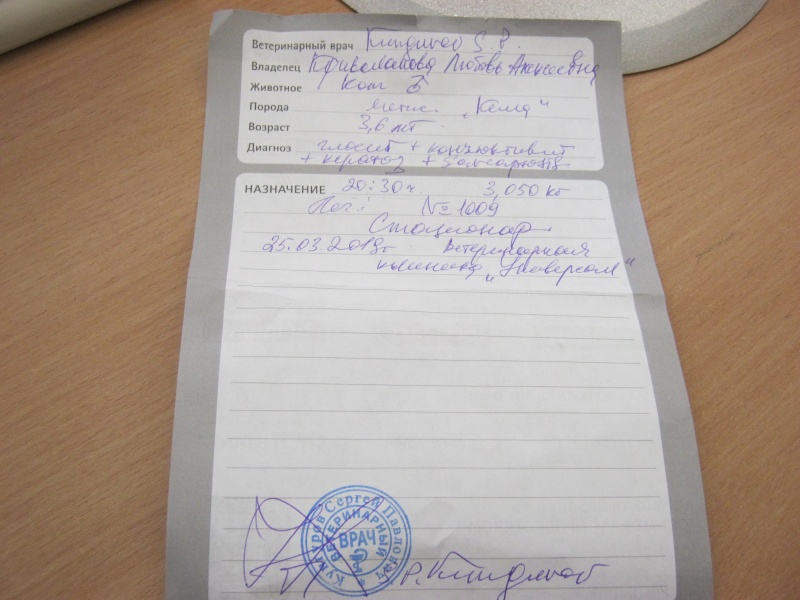 Ветеринарный врач
Владелец Кривелапова Любовь Алексеевна
Животное Кот ♂
Порода метис. "Кема"
Возраст 3,6 лет
Диагноз глосит + конъюнктивит
+ кератоз +
НАЗНАЧЕНИЕ 20:30 ч. 3,050 кг
№ 1009
Стационар
25.03.2019г. Ветеринарная
клиника "Универсал"
Сергей Павлович
ВЕТЕРИНАРНЫЙ
ВРАЧ